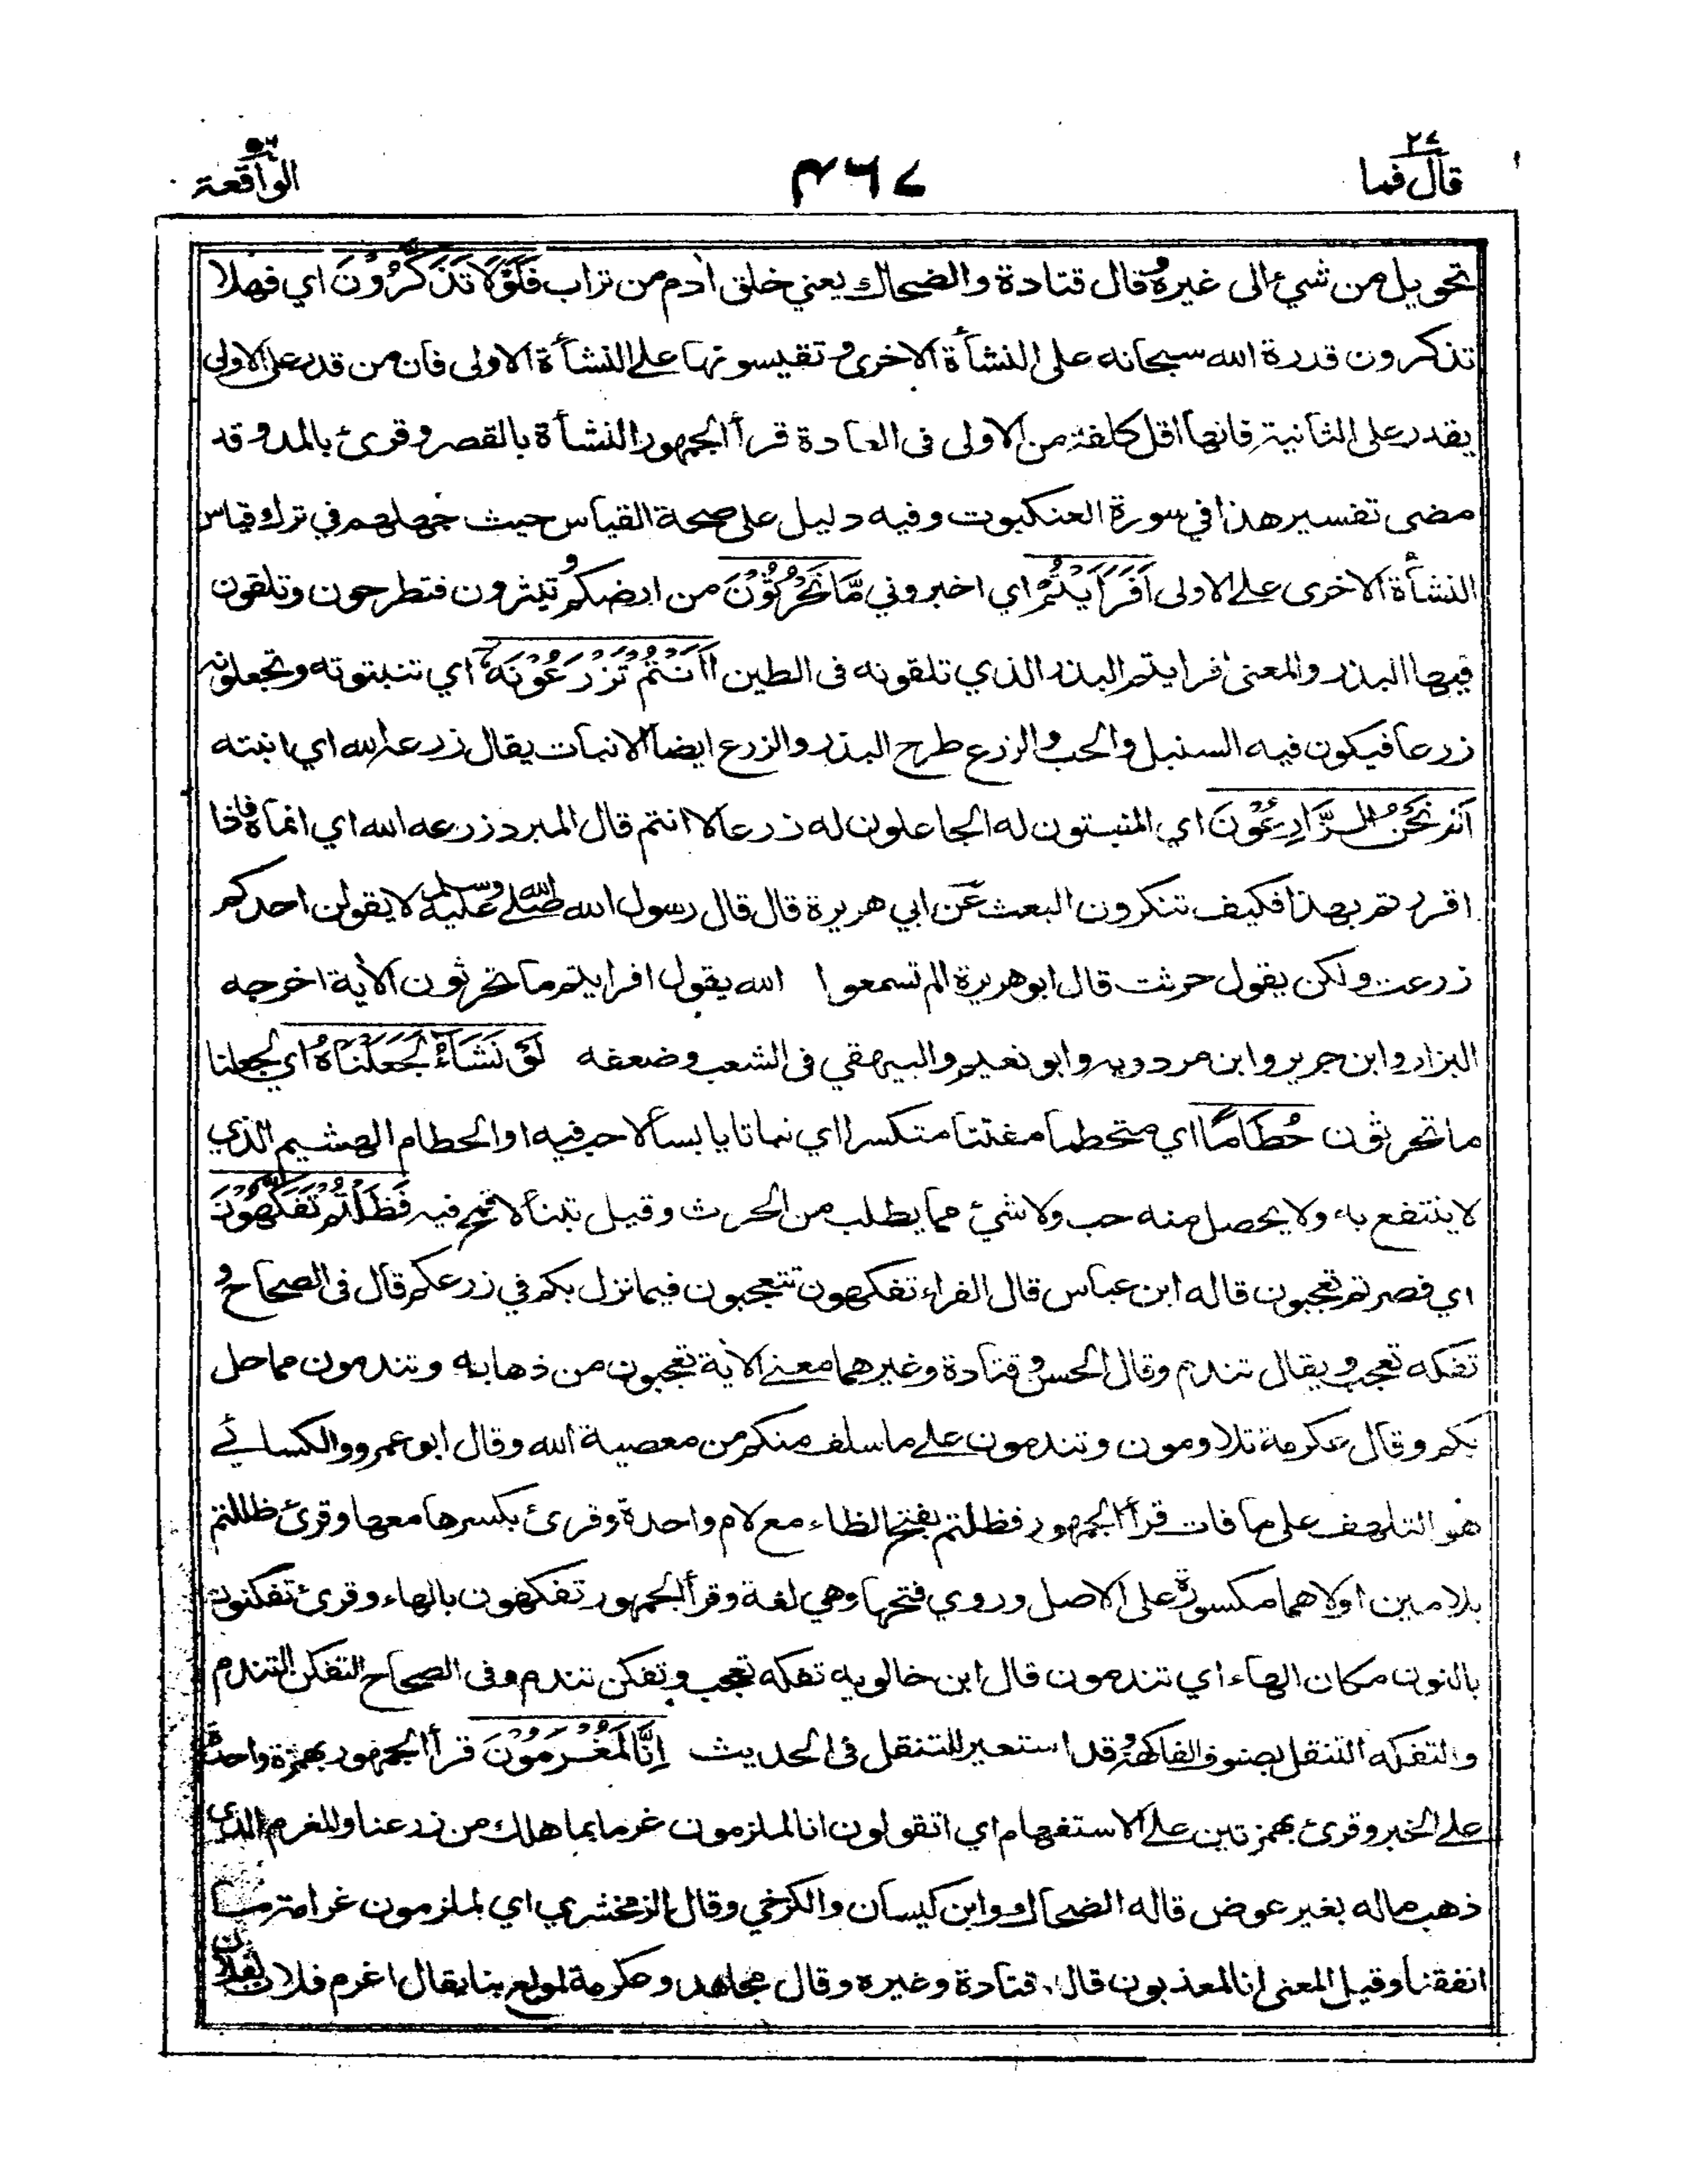 ٢٧
قال فما
٤٦٧
٥٦
الواقعة
تحويل من شيء الى غيره وقال قتادة والضحاك يعني خلق اٰدم من تراب فَلَوْلَا تَذَكَّرُوْنَ اي فهلا
تذكرون قدرة الله سبحانه على النشأة الاخرى وتقيسونها على النشأة الاولى فان من قدر على الاولى
يقدر على الثانية فانها اقل كلفة من الاولى فى العادة قرأ الجمهور النشأة بالقصر وقرئ بالمد وقد
مضى تفسير هذا في سورة العنكبوت وفيه دليل على صحة القياس حيث جهلهم في ترك قياس
النشأة الاخرى على الاولى اَفَرَاَيْتُمْ اي اخبروني مَّا تَحْرُثُوْنَ من ارضكم وتيثرون فتطرحون وتلقون
فيها البذر والمعنى افرايتم البذر الذي تلقونه فى الطين اَاَنْتُمْ تَزْرَعُوْنَهٗ اي تنبتونه وتجعلونه
زرعا فيكون فيه السنبل والحب والزرع طرح البذر والزرع ايضا الانبات يقال زرعه الله اي انبته
اَمْ نَحْنُ الزَّارِعُوْنَ اي المنبتون له الجاعلون له زرعا لا انتم قال المبرد زرعه الله اي انماه فاذا
اقررتم بهذا فكيف تنكرون البعث عن ابي هريرة قال قال رسول الله صلى الله عليه وسلم لا يقولن احدكم
زرعت ولكن يقول حرثت قال ابو هريرة الم تسمعوا الله يقول افرايتم ما تحرثون الأية اخرجه
البزار وابن جرير وابن مردويه وابو نعيم والبيهقي فى الشعب وضعفه لَوْ نَشَاءُ لَجَعَلْنَاهُ اي لجعلنا
ما تحرثون حُطَامًا اي متحطما مفتتا متكسرا اي نباتا يابسا لا حب فيه او الحطام الهشيم الذي
لا ينتفع به ولا يحصل منه حب ولا شيء مما يطلب من الحرث وقيل تبنا لا قمح فيه فَظَلْتُمْ تَفَكَّهُوْنَ
اي فصرتم تعجبون قاله ابن عباس قال الفراء تفكهون تتعجبون فيما نزل بكم في زرعكم قال فى الصحاح و
تفكه تعجب ويقال تندم وقال الحسن وقتادة وغيرهما معنى الأية تعجبون من ذهابه وتندمون مما حل
بكم وقال عكرمة تلاومون وتندمون على ما سلف منكم من معصية الله وقال ابو عمرو والكسائي
هو التلهف على ما فات قرأ الجمهور فظلتم بفتح الظاء مع لام واحدة وقرئ بكسرها معها وقرئ ظللتم
بلامين اولاهما مكسورة على الاصل وروي فتحها وهي لغة وقرأ الجمهور تفكهون بالهاء وقرئ تفكنون
بالنون مكان الهاء اي تندمون قال ابن خالويه تفكه تعجب وتفكن تندم وفى الصحاح التفكن التندم
والتفكه التنقل بصنوف الفاكهة وقد استعير للتنقل فى الحديث اِنَّا لَمُغْرَمُوْنَ قرأ الجمهور بهمزة واحدة
على الخبر وقرئ بهمزتين على الاستفهام اي اتقولون انا لملزمون غرما بما هلك من زرعنا والمغرم الذي
ذهب ماله بغير عوض قاله الضحاك وابن كيسان والكرخي وقال الزمخشري اي لملزمون غرامة ما
انفقنا وقيل المعنى انا لمعذبون قال قتادة وغيره وقال مجاهد وعكرمة لمولع بنا يقال اغرم فلان بفلان